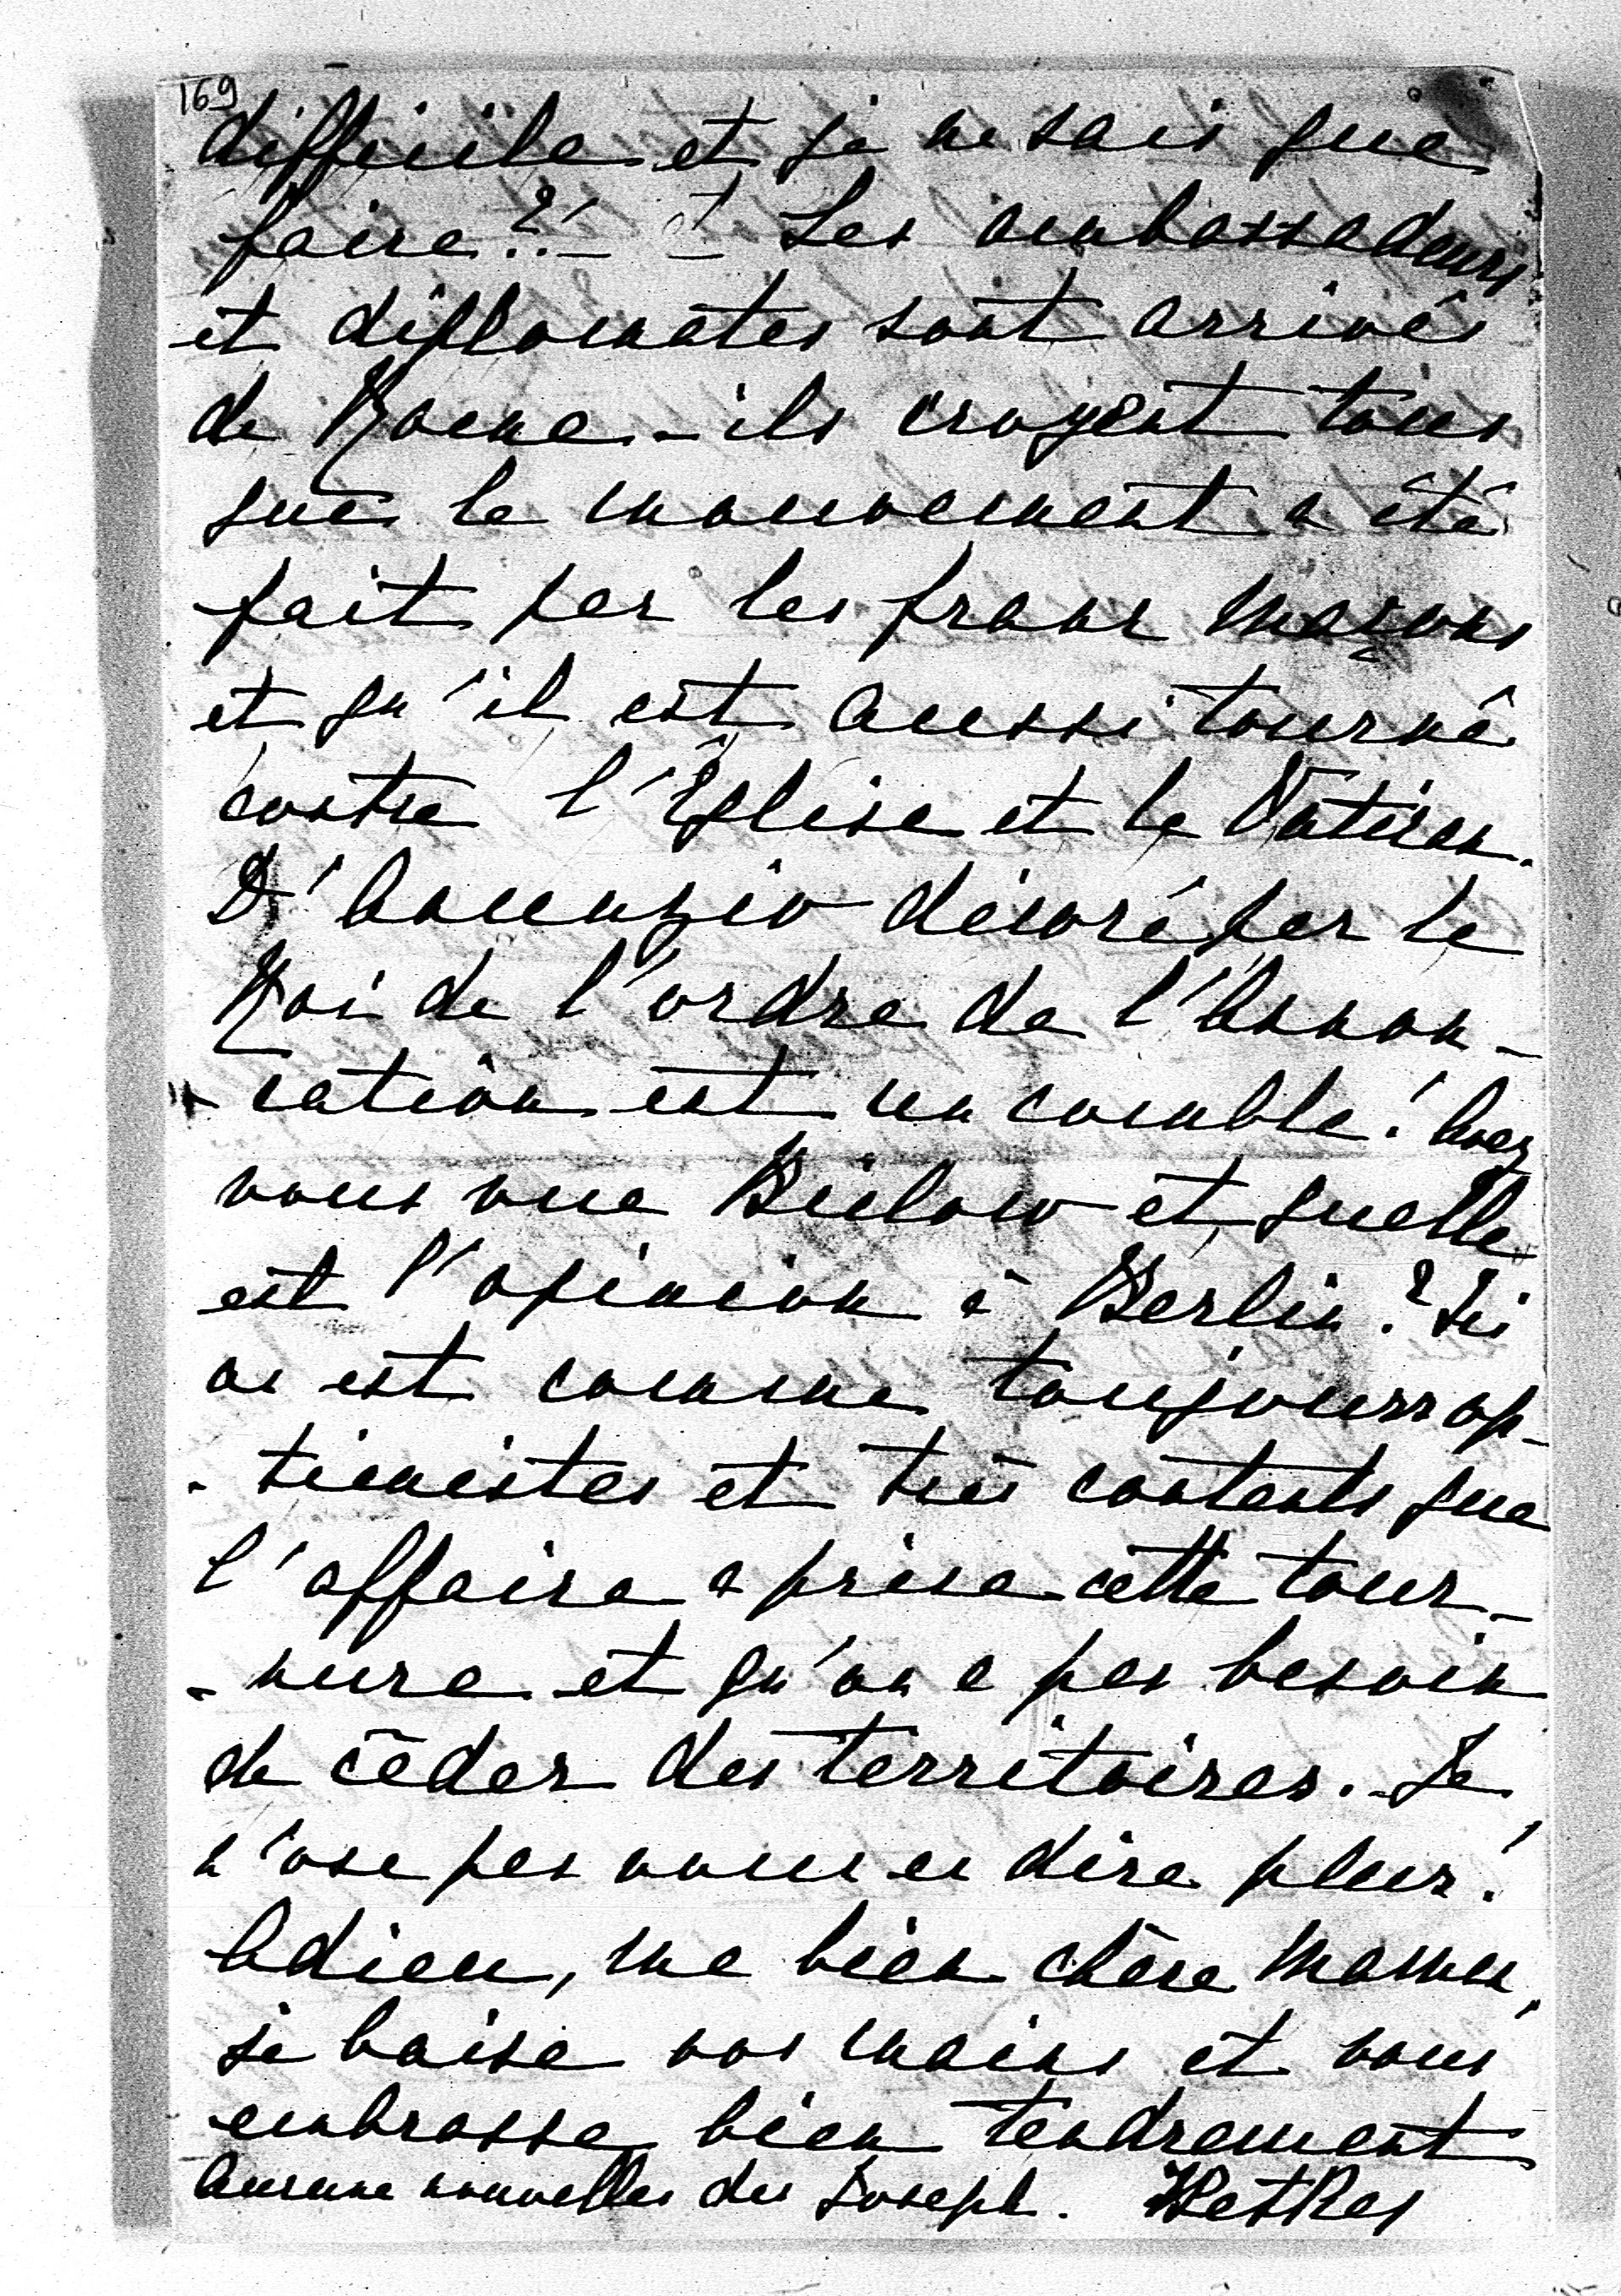 169
difficile et je ne sais que
faire?! – – Les ambassadeurs
et diplomates sont arrivés
de Rome – ils croyent tous
que le mouvement a été
fait par les franc maçons
et qu'il est aussi tourné
contre l'Eglise et le Vatican.
D'Anunzio décoré par le
Roi de l'ordre de l'Annon-
-ciation est un comble! Avez
vous vue Bülow et quelle
est l'opinion à Berlin? Ici
on est comme toujours op-
-timistes et très contents que
l'affaire a prise cette tour-
-nure et qu'on a pas besoin
de céder des territoires. Je
n'ose pas vous en dire plus!
Adieu, ma bien chère Maman,
je baise vos mains et vous
embrasse bien tendrement
Aucune nouvelles des Joseph.